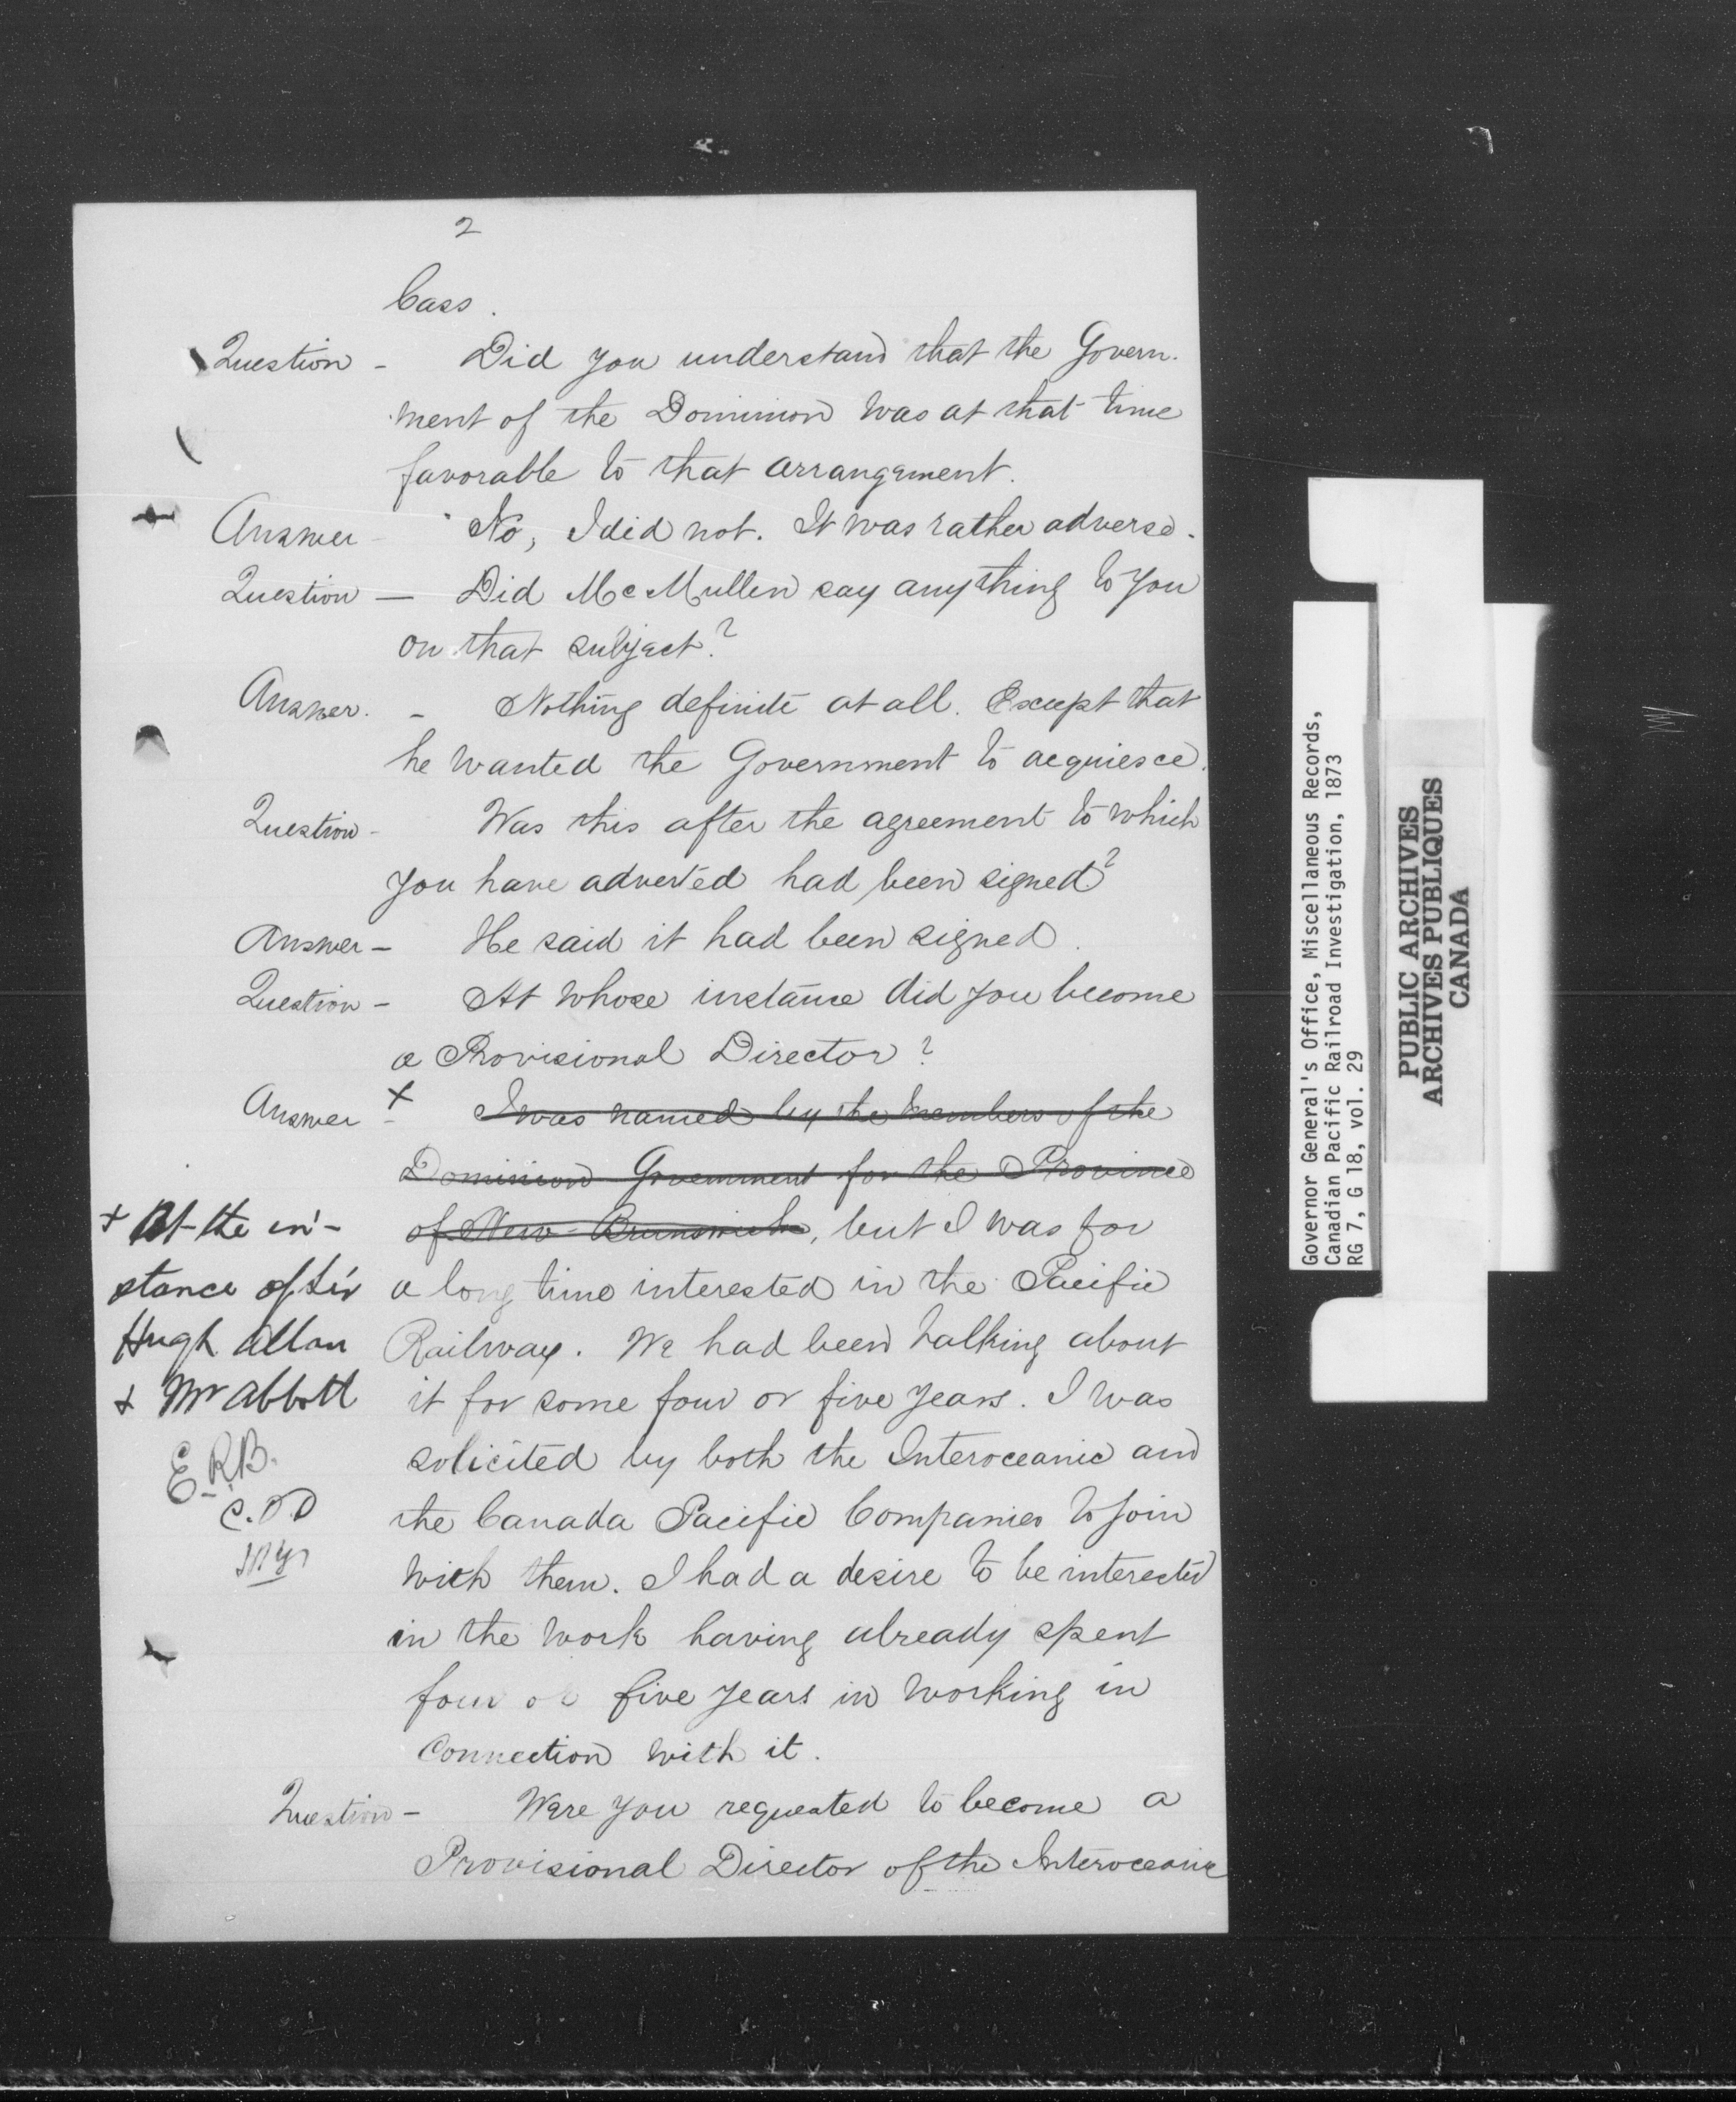 2
Cass.
Question - Did you understand that the Govern-
ment of the Dominion was at that time
favorable to that arrangement.
Answer - No, I did not. It was rather adverse.
Question — Did McMullen say anything to you
on that subject?
Answer. - Nothing definite at all. Except that
he wanted the Government to acquiesce.
Question - Was this after the agreement to which
you have adverted had been signed?
Answer - He said it had been signed.
Question - At whose instance did you become
a Provisional Director?
Answer - + I was named by the members of the
Dominion Government for the Province
of New Brunswick, but I was for
a long time interested in the Pacific
Railway. We had been talking about
it for some four or five years. I was
solicited by both the Interoceanic and
the Canada Pacific Companies to join
with them. I had a desire to be interested
in the work having already spent
four or five years in working in
connection with it.
Question - Were you requested to become a
Provisional Director of the Interoceanic
+ At the in-
stance of Sir
Hugh Allan
& Mr Abbott
E.R.B.
C.D.D
Governor General's Office, Miscellaneous Records,
Canadian Pacific Railroad Investigation, 1873
RG 7, G 18, vol. 29
PUBLIC ARCHIVES
ARCHIVES PUBLIQUES
CANADA